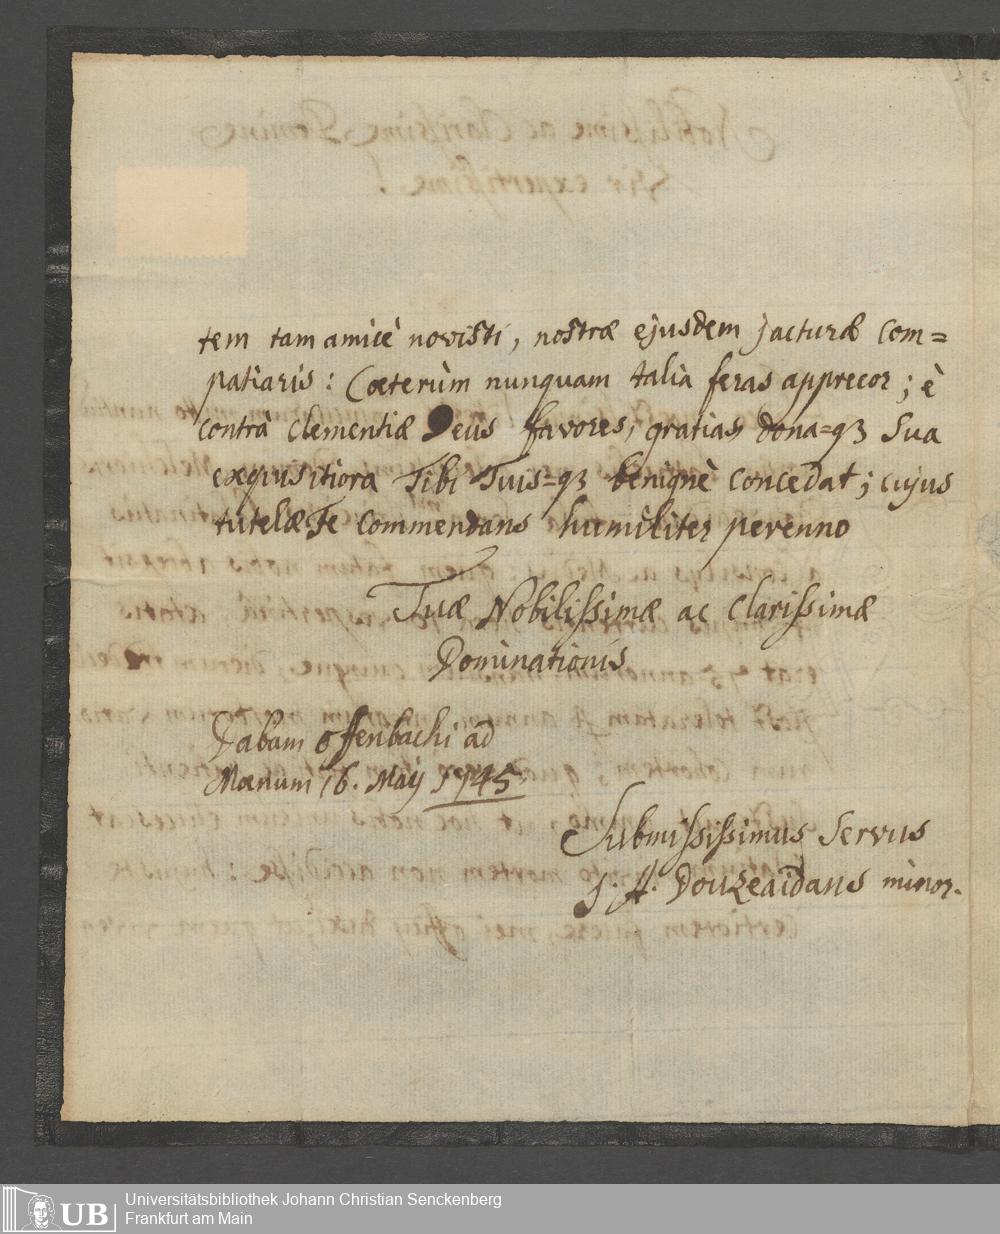 tem tam amicè novisti, nostræ ejusdem jacturæ com=
patiaris: Cæterùm nunquam talia feras apprecor; è
contrà Clementiæ Deus favores, gratias, dona=qz Sua
exquisitiora Tibi Tuis=qz benignè concedat; cujus
tutelæ Te commendans humiliter perenno
Tuæ Nobilissimæ ac Clarissimæ
Dominationis
Dabam Offenbachi ad
Mœnum 16. Maij 1745.
Submississimus Servus
J. A. Douzeaidans minor.
Universitätsbibliothek Johann Christian Senckenberg
Frankfurt am Main
UB